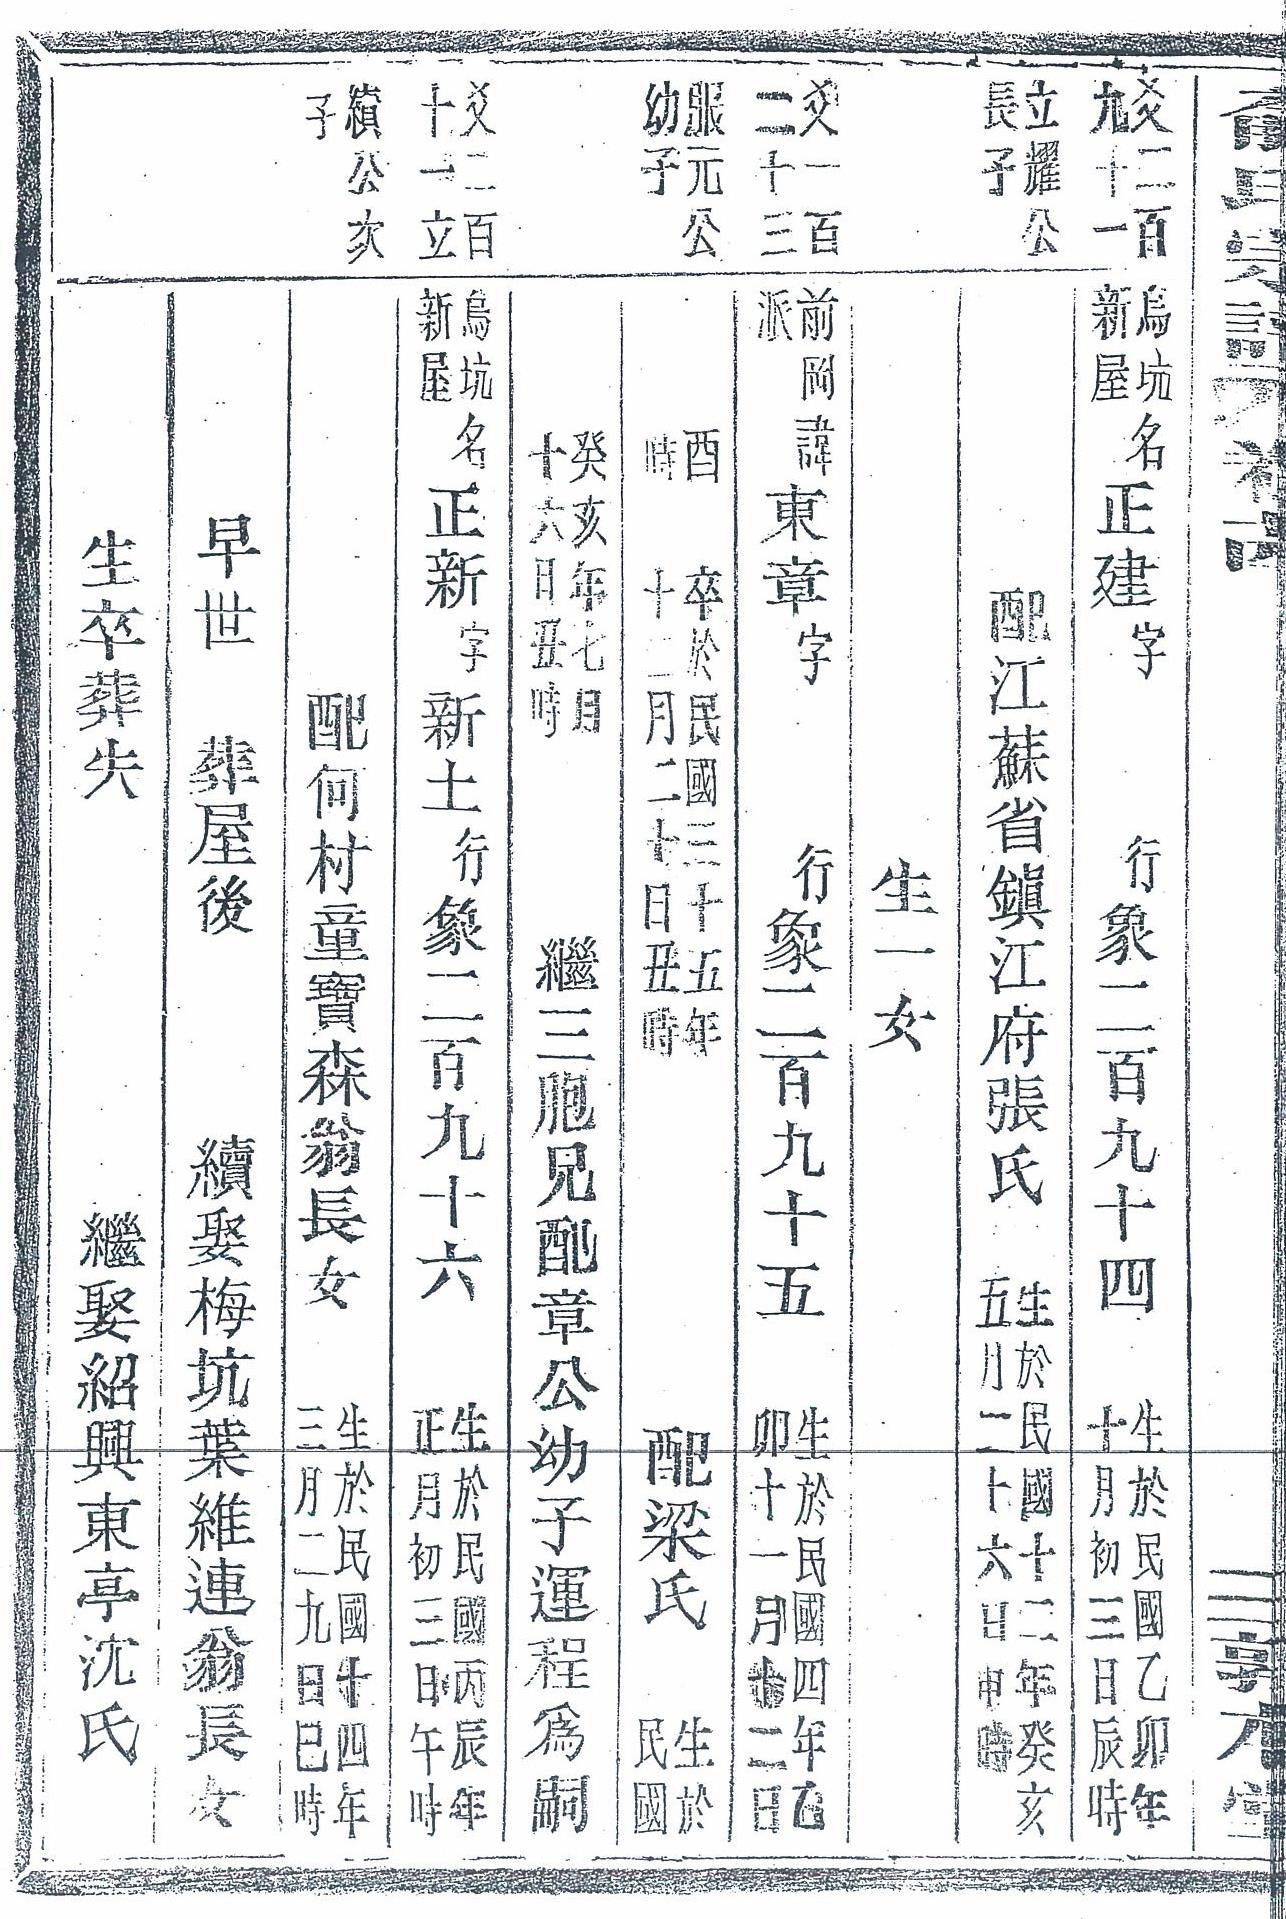 氏宗譜
爻二百
九十一
立耀公
長子
烏坑
新屋
名正建字 行象二百九十四
生於民國乙卯年
十月初三日辰時
配江蘇省鎮江府張氏
生於民國十二年癸亥
五月二十六日申時
生一女
爻一百
二十三
服元公
幼子
前岡
派
諱東章字 行象二百九十五
生於民國四年乙
卯十一月廿二日
酉
時
卒於民國三十五年
十二月二十日丑時
配梁氏
生於
民國
癸亥年七月
十六日丑時
繼三胞兄配章公幼子運程爲嗣
爻二百
十一立
公次
子
烏坑
新屋
名正新字新土行象二百九十六
生於民國丙辰年
正月初三日午時
配何村童寶森翁長女
生於民國十四年
三月二九日巳時
早世 葬屋後 續娶梅坑葉維連翁長女
生卒葬失 繼娶紹興東亭沈氏